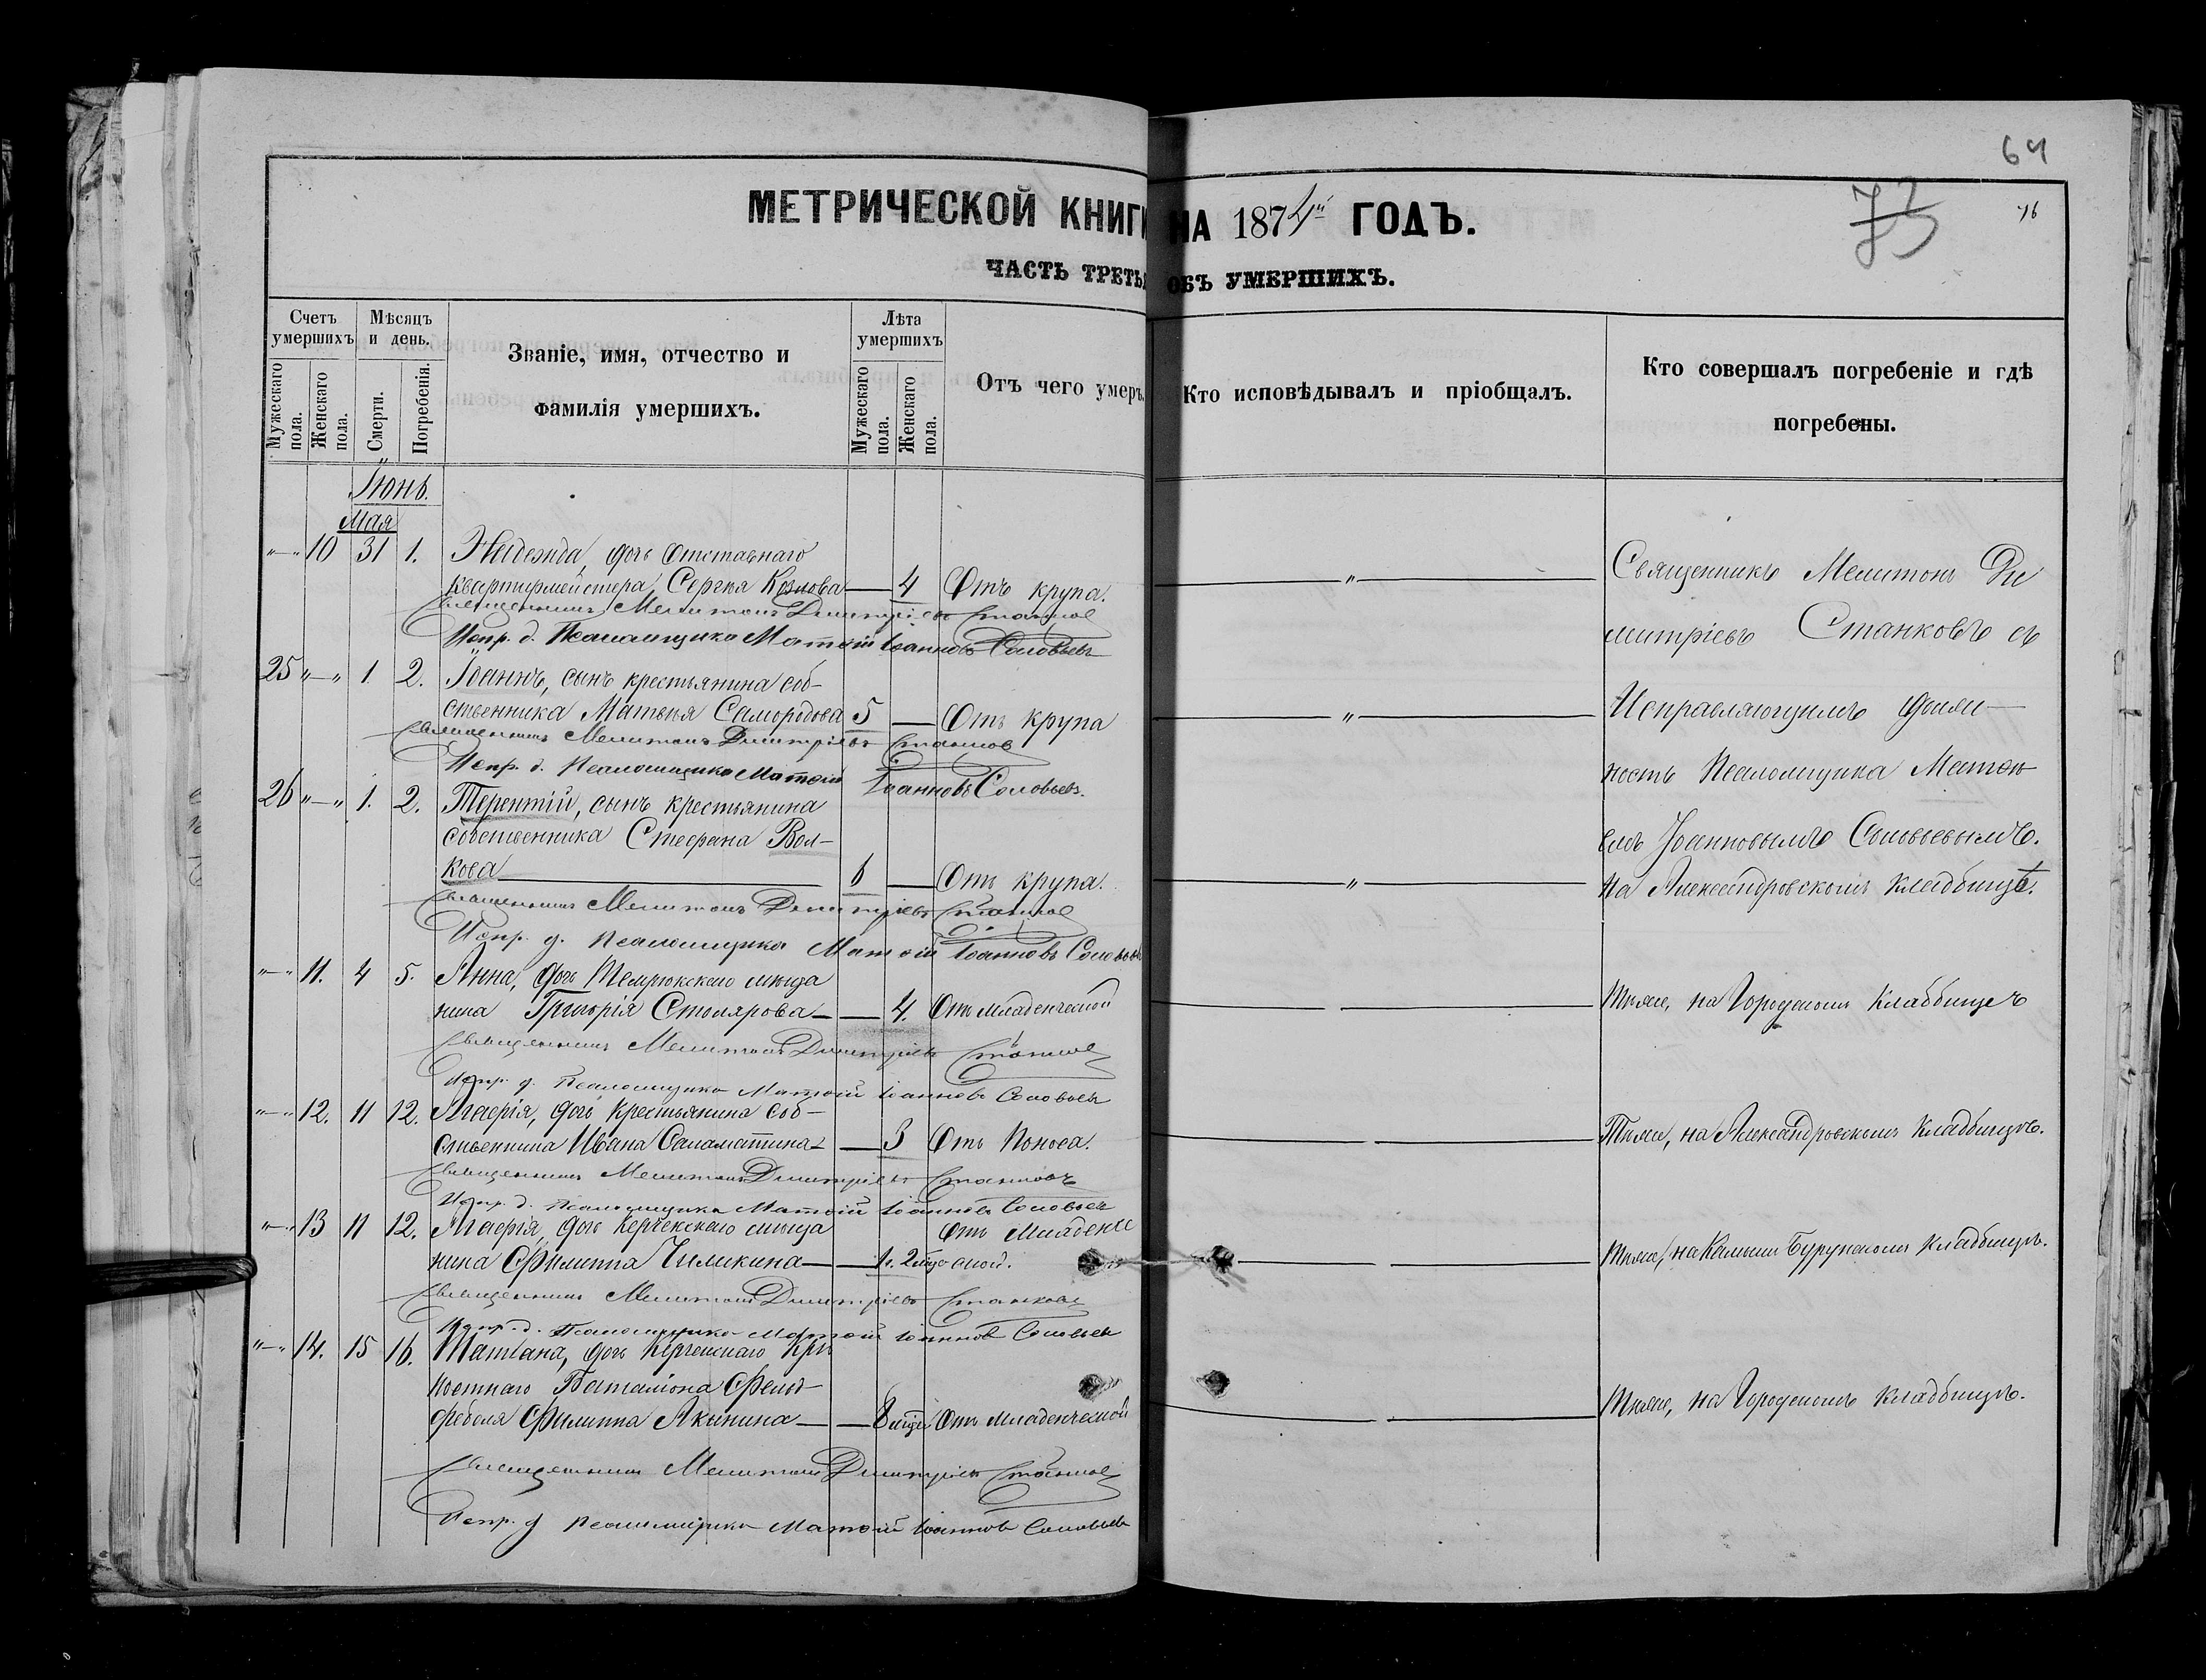 64
73
76
МЕТРИЧЕСКОЙ КНИГИ НА 1874й ГОДЪ.
ЧАСТЬ ТРЕТЬЯ ОБЪ УМЕРШИХЪ.
Счетъ умершихъ
Мужескаго пола.
Женскаго пола.
Мѣсяцъ и день.
Смерти.
Погребенія.
Званіе, имя, отчество и
фамилія умершихъ.
Лѣта умершихъ
Мужескаго пола.
Женскаго пола.
Отъ чего умеръ.
Кто исповѣдывалъ и пріобщалъ.
Кто совершалъ погребеніе и гдѣ
погребены.
Іюнь.
Мая
"—" 10 31 1. Надежда, дочь отставнаго
квартирмейстера Сергѣя Козлова — 4 Отъ крупа. — " —
Священникъ Мелитонъ Димитріевъ Станковъ
Испр. д. Псаломщика Матѳій Іоанновъ Соловьевъ
Священникъ Мелитонъ Ди
митріевъ Станковъ съ
25 "—" 1 2. Іоаннъ, сынъ крестьянина соб-
ственника Матвѣя Самородова 5 — Отъ крупа — " —
Священникъ Мелитонъ Димитріевъ Станковъ
Испр. д. Псаломщика Матѳій Іоанновъ Соловьевъ.
Исправляющимъ долж-
ность Псаломщика Матѳѣ
26 "—" 1. 2. Терентій, сынъ крестьянина
собственника Стефана Вол-
кова — 6 — Отъ крупа. — " —
Священникъ Мелитонъ Димитріевъ Станковъ
Испр. д. Псаломщика Матѳій Іоанновъ Соловьевъ
емъ Іоанновымъ Соловьевымъ.
на Александровскомъ кладбищѣ.
"—" 11. 4 5. Анна, дочь Темрюкскаго мѣща
нина Григорія Столярова — — 4. Отъ младенческой
Священникъ Мелитонъ Димитріевъ Станковъ
Испр. д. Псаломщика Матѳій Іоанновъ Соловьевъ
Тѣже, на Городскомъ кладбищѣ
"—" 12. 11 12. Агафія, дочь крестьянина соб-
ственника Ивана Саламатина — — 3 Отъ поноса.
Священникъ Мелитонъ Димитріевъ Станковъ
Испр. д. Псаломщика Матѳій Іоанновъ Соловьевъ
Тѣже, на Александровскомъ кладбищѣ.
"—" 13 11 12. Агафія, дочь керченскаго мѣща Отъ младенче
нина Филиппа Чиликина — — 1. ской.
Священникъ Мелитонъ Димитріевъ Станковъ
Испр. д. Псаломщика Матѳій Іоанновъ Соловьевъ
Тѣже, на Камыш Бурунскомъ кладбищѣ.
"—" 14. 15 16. Татіана, дочь керченскаго крѣ
постнаго баталіона фельд-
фебеля Филиппа Акинина — — 8 мѣс Отъ младенческой
Священникъ Мелитонъ Димитріевъ Станковъ
Испр. д. Псаломщика Матѳій Іоанновъ Соловьевъ
Тѣже, на Городскомъ кладбищѣ.